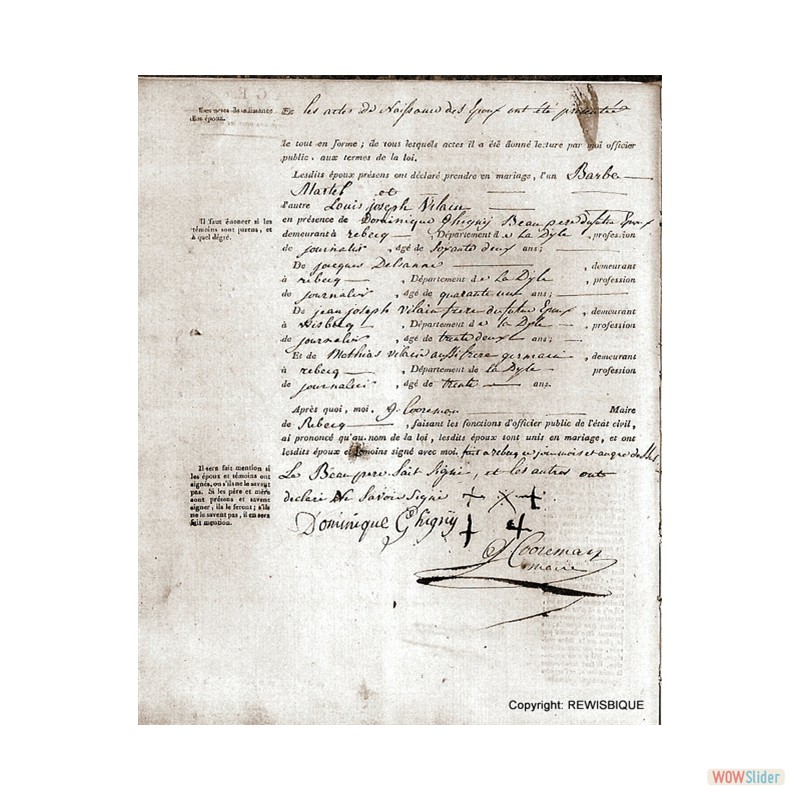 Les actes de naissance des époux.
Et les actes de Naissance des Epoux ont été présentés
le tout en forme ; de tous lesquels actes il a été donné lecture par moi officier
public, aux termes de la loi.
Lesdits époux présens ont déclaré prendre en mariage, l'un Barbe
Martel et
d'autre Louis joseph Vilain
Il faut énoncer si les
témoins sont parens, et
à quel dégré.
en présence de Dominique Ghigny Beau pere du futur Epoux
demeurant à rebecq Département de La Dyle profession
de journalier, âgé de soixante deux ans ;
De jacques Delsanne, demeurant
à rebecq, Département de La Dyle profession
de journalier, âgé de quarante ans ;
De jean joseph Vilain frere du futur Epoux, demeurant
à Wisbecq, Département de la Dyle profession
de journalier âgé de trente deux ans ;
Et de Mathias vilain aussi frere germain, demeurant
à rebecq, Département de La Dyle profession
de journalier âgé de trente ans.
Après quoi, moi, J. Cooreman Maire
de Rebecq, faisant les fonctions d'officier public de l'état civil,
ai prononcé qu'au nom de la loi, lesdits époux sont unis en mariage, et ont
lesdits époux et témoins signé avec moi. fait a rebecq jour mois et an
Il sera fait mention si
les époux et témoins ont
signés, ou s'ils ne le savent
pas. Si les père et mère
sont présens et savent
signer, ils le feront ; s'ils
ne le savent pas, il en sera
fait mention.
Le Beau pere sait Signé, et les autres ont
declaré Ne Savoir Signé + X +
Dominique Ghigny + +
J Cooreman
maire
Copyright: REWISBIQUE
WOWSlider